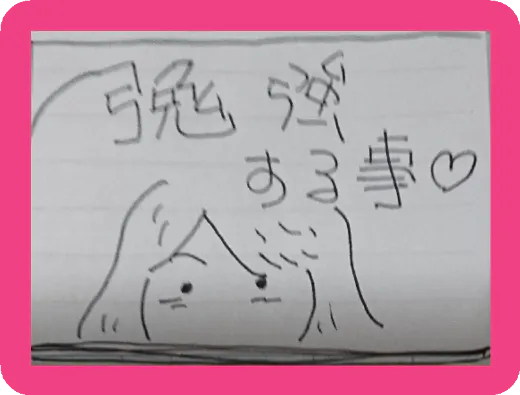 勉強
する事♡